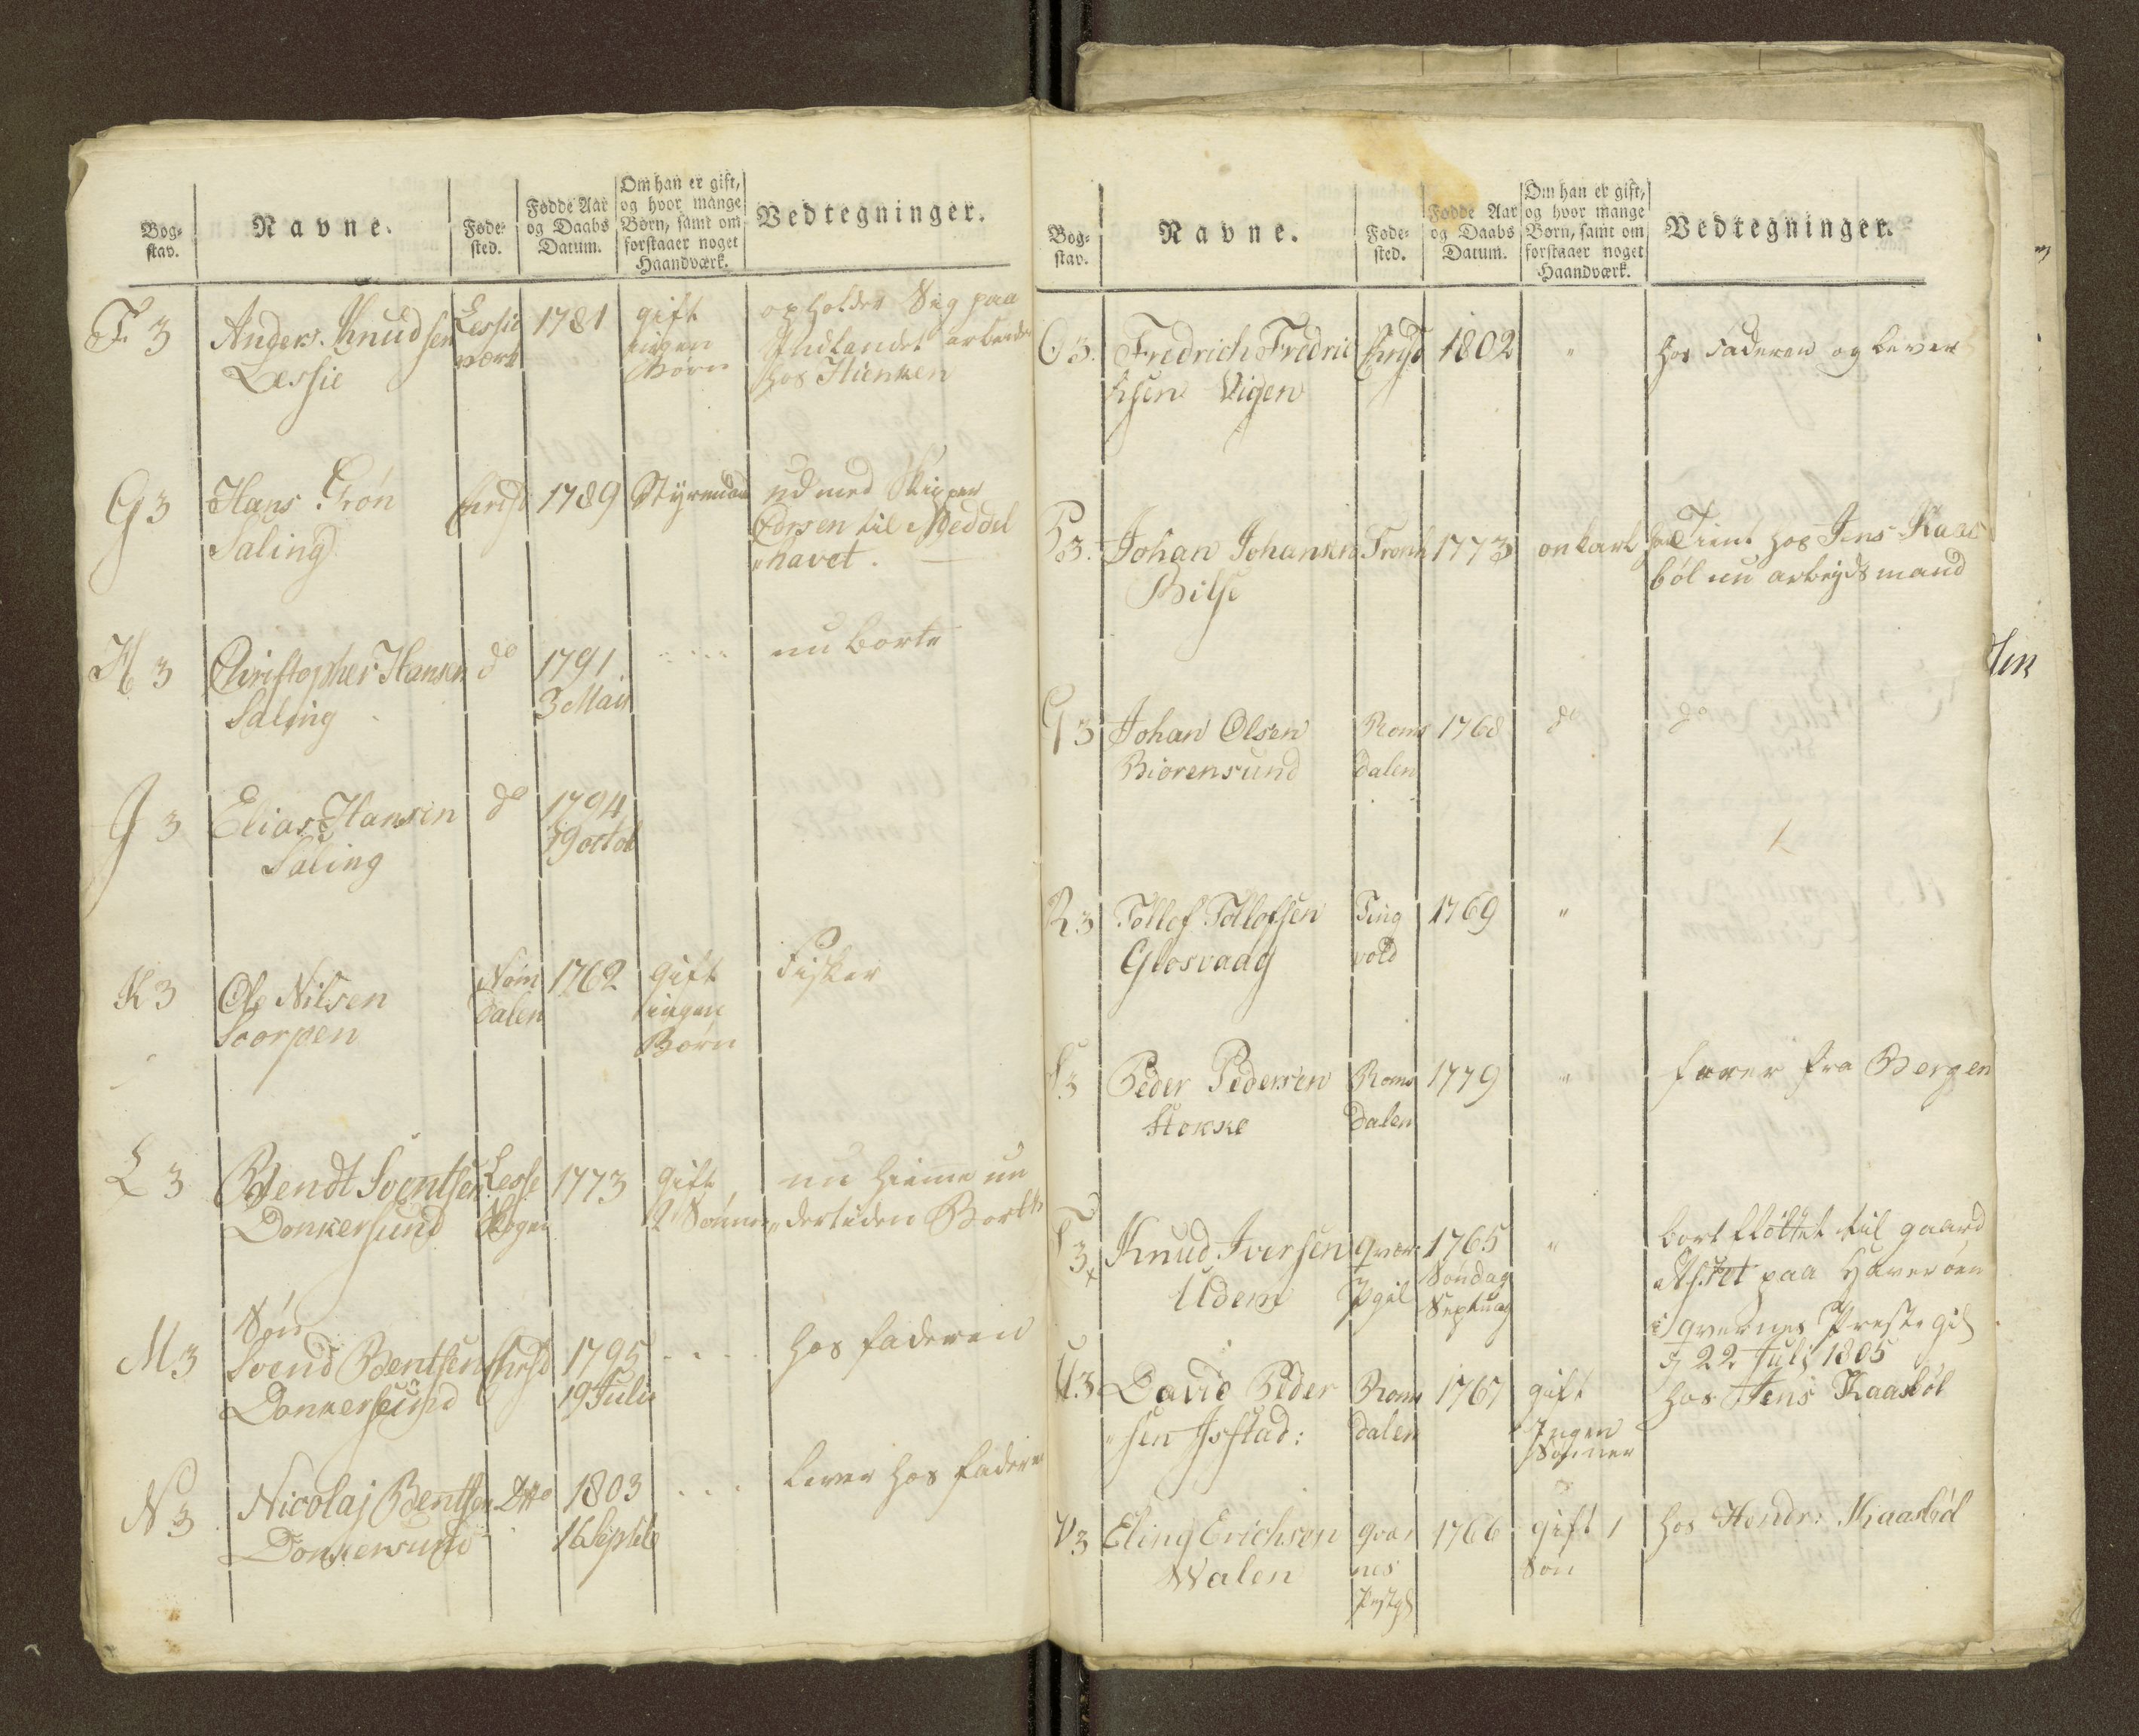 Bog-
stav.
Navne.
Føde-
sted.
Fødde Aar
og Daabs
Datum.
Om han er gift,
og hvor mange
Børn, samt om
forstaaer noget
Haandværk.
Vedtegninger.
F 3
Anders Knudsen
Lessie
Lessie
værk
1781
gift
ingen
Børn
opholder Sig paa
Indlandet arbeider
hos
G 3
Hans Grön
Saling
Christ
1789
Styrmand
ud med Skipper
til Meddel
havet.
H 3
Christopher Hansen
Saling
do
1791
3 Maii
nu borte
J 3
Elias Hansen
Saling
do
1794
octob
K 3
Ole Nilsen
Soorpen
Nom
dalen
1762
gift
ingen
Børn
Fisker
L 3
Bendt Sventsen
Donkersund
Lesse
Skogen
1773
gift
2 Sønner
nu hieme un
dertiden Borte
M 3
Søn
Svend Bentsen
Donkersund
Christ
1795
19 Julii
hos faderen
N 3
Nicolaj Bentsen
Donkersund
Dtto
1803
16 Septeb
lever hos fadere
Bog-
stav.
Navne.
Føde-
sted.
Fødde Aar
og Daabs
Datum.
Om han er gift,
og hvor mange
Børn, samt om
forstaaer noget
Haandværk.
Vedtegninger.
O 3.
Fredrich Fredric
hsen Vigen
Christ
1802
"
hos Faderen og lever
P 3.
Johan Johansen
Bilse
Tronh
1773
en karl
Tient hos Jens Kaas
böl nu arbeydsmand
Q 3
Johan Olsen
Biörensund
Roms
dalen
1768
do
do
R 3
Tollef Tollefsen
Glosvaag
Ting
vold
1769
"
S 3
Peder Pedersen
Stokke
Roms
dalen
1779
"
farer fra Bergen
T 3
x
Knud Iversen
Udem
qver
Pgil
1765
Søndag
Septuag
"
bort flöttet til gaard
paa Haveröen
i qvernes Prestegil
d 22 Julj 1805
U 3
David Peder
sen Isstad:
Roms
dalen
1767
gift
Ingen
Sønner
hos Jens Kaasböl
V 3
Eling Erichsen
Walen
qver
nes
Prestgl
1766
gift 1
Søn
hos Hendr: Kaasböl